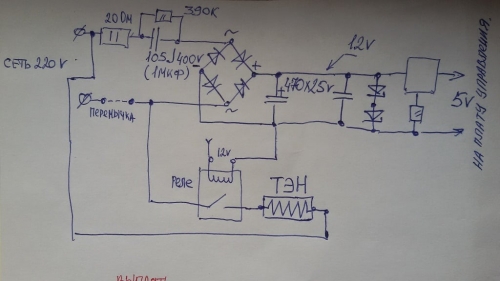 20 Ом
390К
СЕТЬ 220 V
105J 400V
(1МКФ)
~
+
-
~
12V
+
470X25V
5V
НА ПЛАТУ УПРАВЛЕНИЯ.
ПЕРЕМЫЧКА
12V
Реле
ТЭН